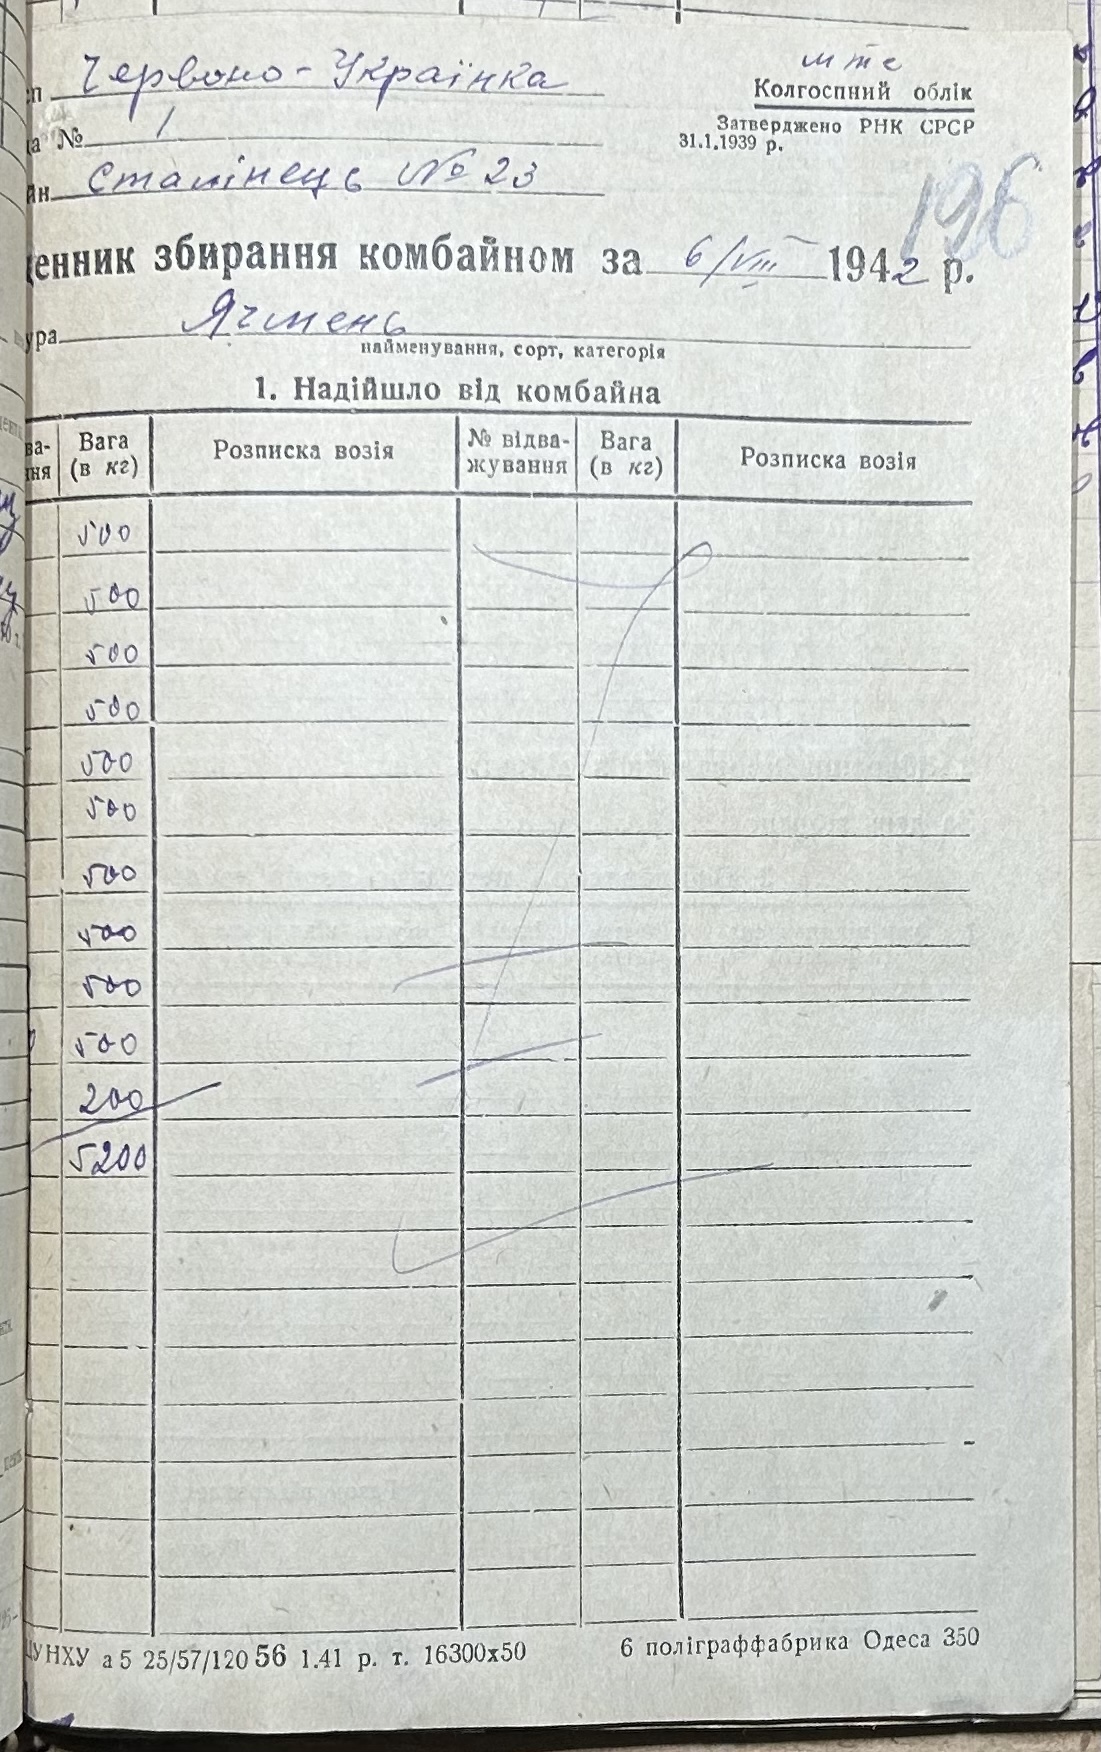 мтс
сп Червоно-Українка
Колгоспний облік
Затверджено РНК СРСР
31.1.1939 р.
да № 1
йн Сталінець № 23
196
денник збирання комбайном за 6/VIII 1942 р.
ура Ячмень
найменування, сорт, категорія
1. Надійшло від комбайна
ва-ння Вага (в кг) Розписка возія № відва-жування Вага (в кг) Розписка возія
500
500
500
500
500
500
500
500
500
500
200
5200
ЦУНХУ а 5 25/57/120 56 1.41 р. т. 16300х50 6 поліграффабрика Одеса 350